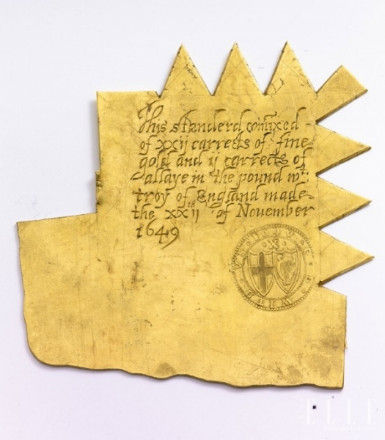 This standerd comixed
of xxij carrects of fine
gold and ij carrects of
allaye in the pound wt
troy of England made
the xxij th of Nouember
1649
ELLE